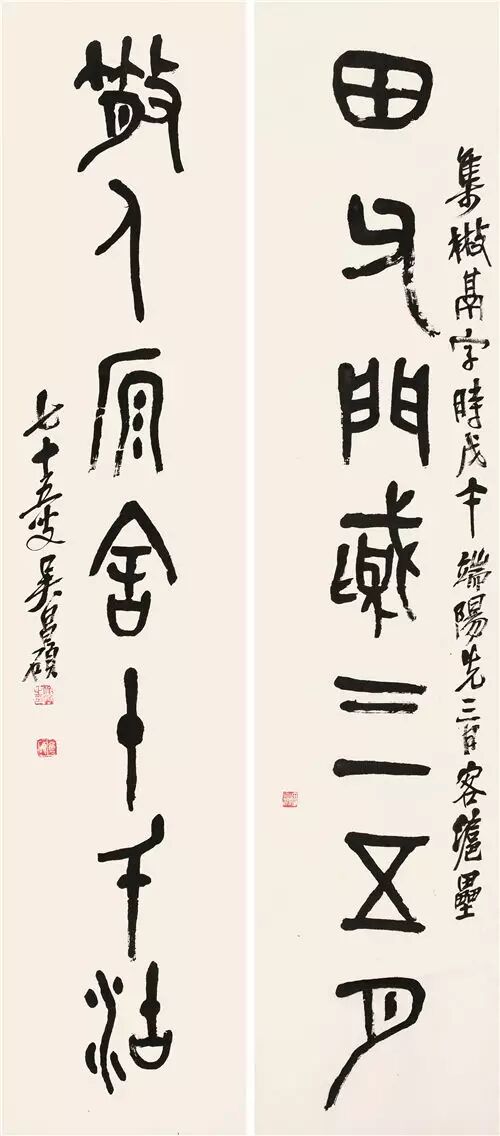 集散鬲字時戊午端陽先三日客滬壘
田父門三五月
散人原舍十千沽
七十五叟吳昌碩